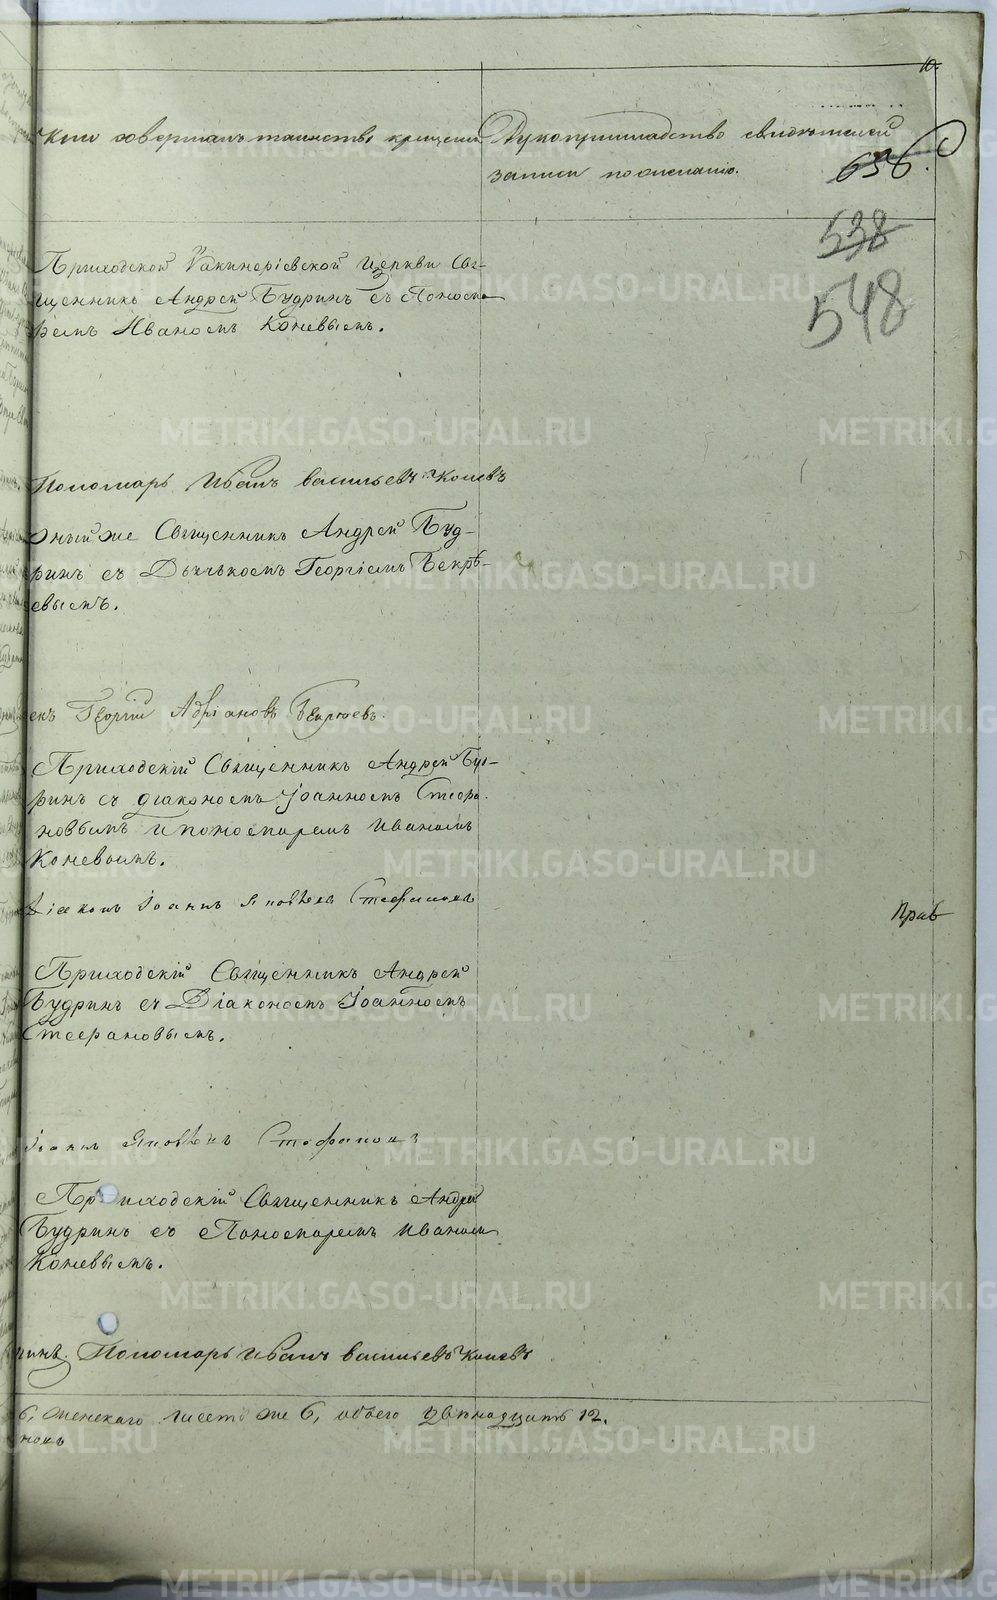 10.
Кто совершалъ таинство крещенія
Рукоприкладство свидѣтелей
записи по желанію.
636.
538
548
Приходской Іакинѳіевской Церкви Свя-
щенникъ Андрей Будринъ съ Понома-
ремъ Иваномъ Коневымъ.
Пономарь Иванъ Васильевъ Коневъ
Оный же Священникъ Андрей Буд-
ринъ съ Дьячькомъ Георгіемъ
евымъ.
Георгій Адріановъ
Приходскій Священникъ Андрей Буд-
ринъ съ діакономъ Іоанномъ Стефа-
новымъ и пономаремъ Иваномъ
Коневымъ.
Діаконъ Іоаннъ Яковлевъ Стефановъ
Прав
Приходскій Священникъ Андрей
Будринъ съ Діакономъ Іоанномъ
Стефановымъ.
Іоаннъ Яковлевъ Стефановъ
Приходскій Священникъ Андрей
Будринъ съ Пономаремъ Иваномъ
Коневымъ.
ринъ. Пономарь Иванъ Васильевъ Коневъ
6, женскаго шесть же 6, обоего двѣнадцать 12.
METRIKI.GASO-URAL.RU